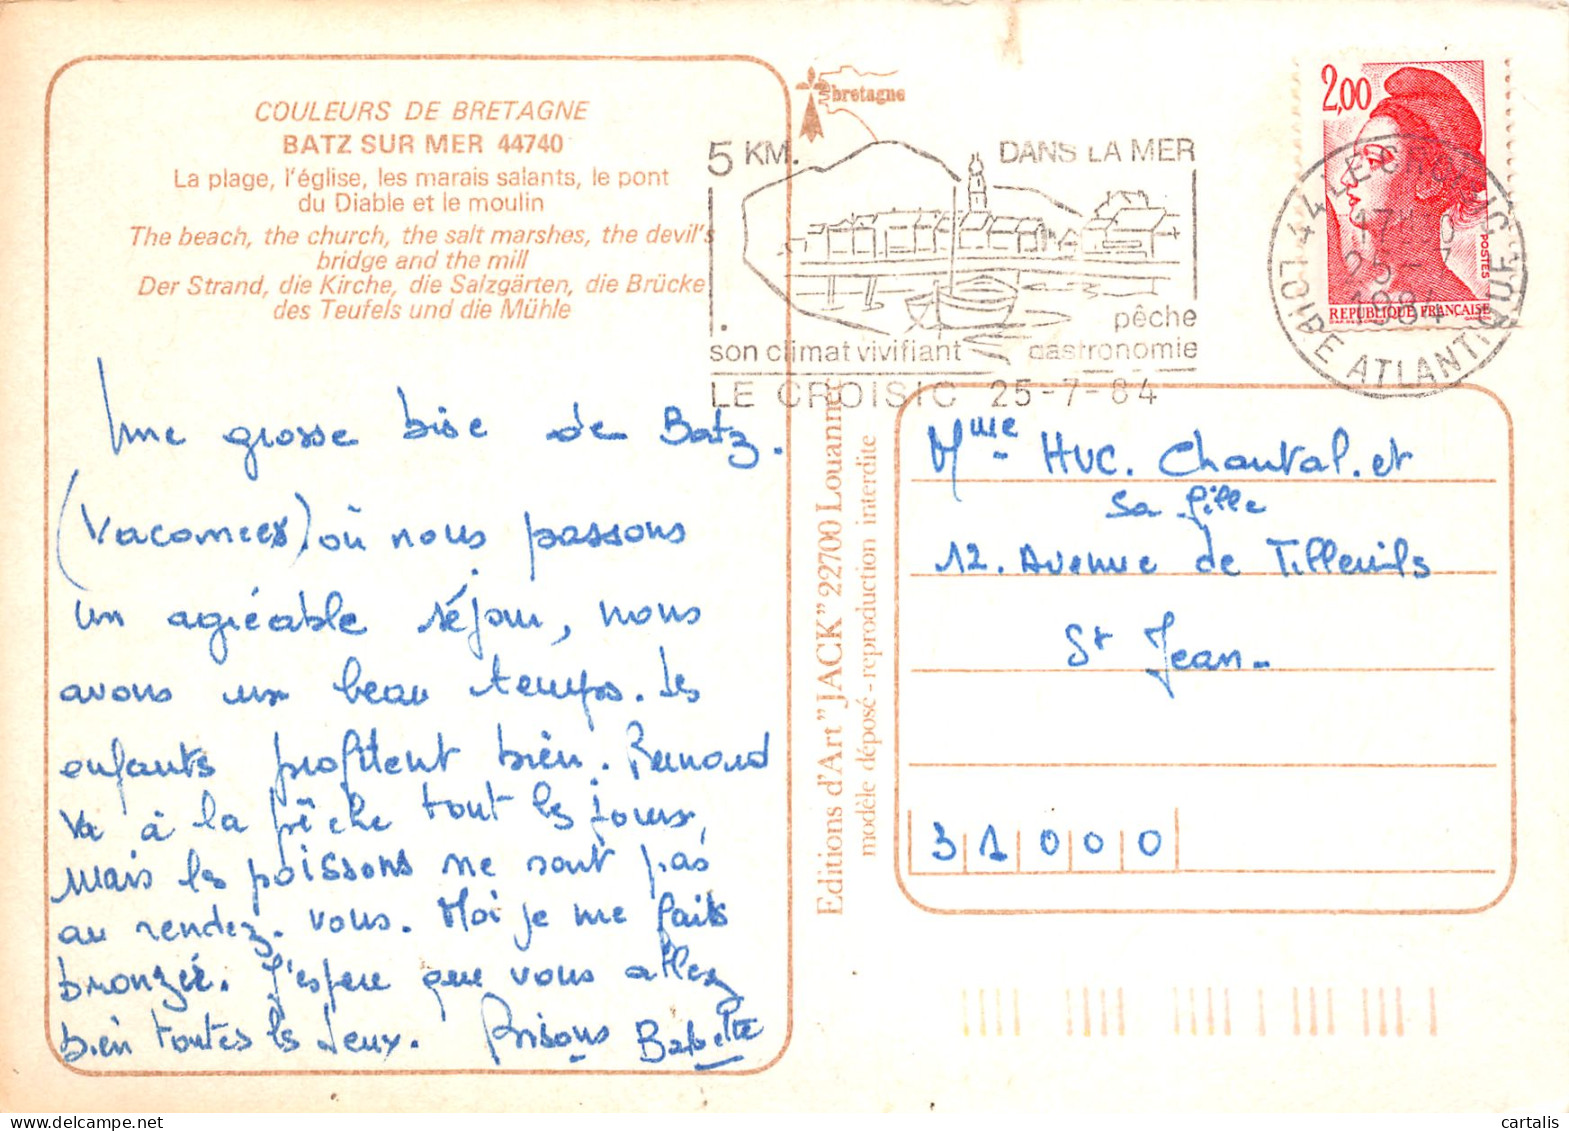 COULEURS DE BRETAGNE
BATZ SUR MER 44740
La plage, l'église, les marais salants, le pont
du Diable et le moulin
The beach, the church, the salt marshes, the devil's
bridge and the mill
Der Strand, die Kirche, die Salzgärten, die Brücke
des Teufels und die Mühle
bretagne
5 KM. DANS LA MER
pêche
son climat vivifiant gastronomie
LE CROISIC 25-7-84
2,00
POSTES
REPUBLIQUE FRANÇAISE
44 LE CROISIC
25-7
1984
LOIRE ATLANTIQUE
Une grosse bise de Batz.
(Vacances) où nous passons
un agréable séjour, nous
avons un beau temps. Les
enfants profitent bien. Bernard
va à la pêche tout les jours,
mais les poissons ne sont pas
au rendez-vous. Moi je me fais
bronzée. J'espere que vous allez
bien toutes les deux. Bisous Babette
Editions d'Art "JACK" 22700 Louannec
modèle déposé - reproduction interdite
Mme HUC. Chantal. et
sa fille
12. Avenue de Tilleuils
St Jean-
31000
cartalis
delcampe.net